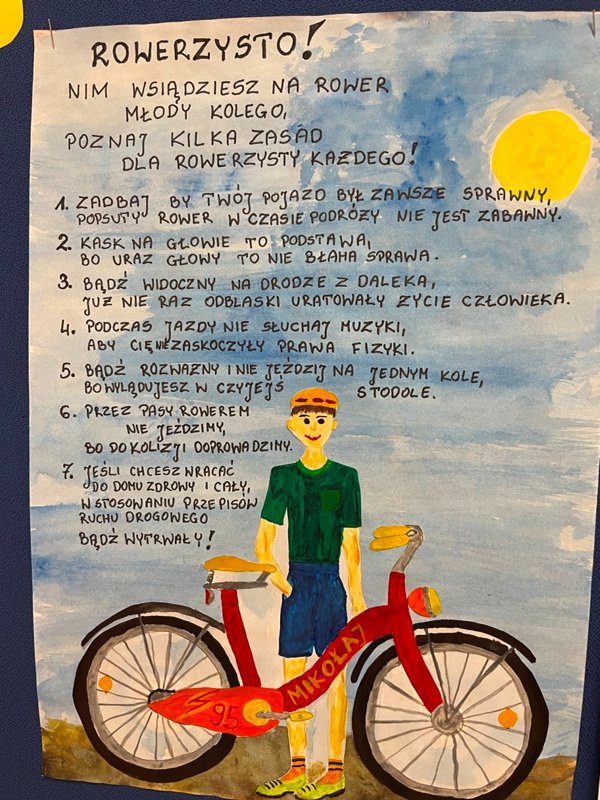 ROWERZYSTO!
NIM WSIĄDZIESZ NA ROWER
MŁODY KOLEGO,
POZNAJ KILKA ZASAD
DLA ROWERZYSTY KAŻDEGO!
1. ZADBAJ BY TWÓJ POJAZD BYŁ ZAWSZE SPRAWNY,
POPSUTY ROWER W CZASIE PODRÓŻY NIE JEST ZABAWNY.
2. KASK NA GŁOWIE TO PODSTAWA,
BO URAZ GŁOWY TO NIE BŁAHA SPRAWA.
3. BĄDŹ WIDOCZNY NA DRODZE Z DALEKA,
JUŻ NIE RAZ ODBLASKI URATOWAŁY ŻYCIE CZŁOWIEKA.
4. PODCZAS JAZDY NIE SŁUCHAJ MUZYKI,
ABY CIĘ NIE ZASKOCZYŁY PRAWA FIZYKI.
5. BĄDŹ ROZWAŻNY I NIE JEŹDZIJ NA JEDNYM KOLE,
BO WYLĄDUJESZ W CZYJEJŚ STODOLE.
6. PRZEZ PASY ROWEREM
NIE JEŹDZIMY,
BO DO KOLIZJI DOPROWADZIMY.
7. JEŚLI CHCESZ WRACAĆ
DO DOMU ZDROWY I CAŁY,
W STOSOWANIU PRZEPISÓW
RUCHU DROGOWEGO
BĄDŹ WYTRWAŁY!
MIKOŁAJ
95